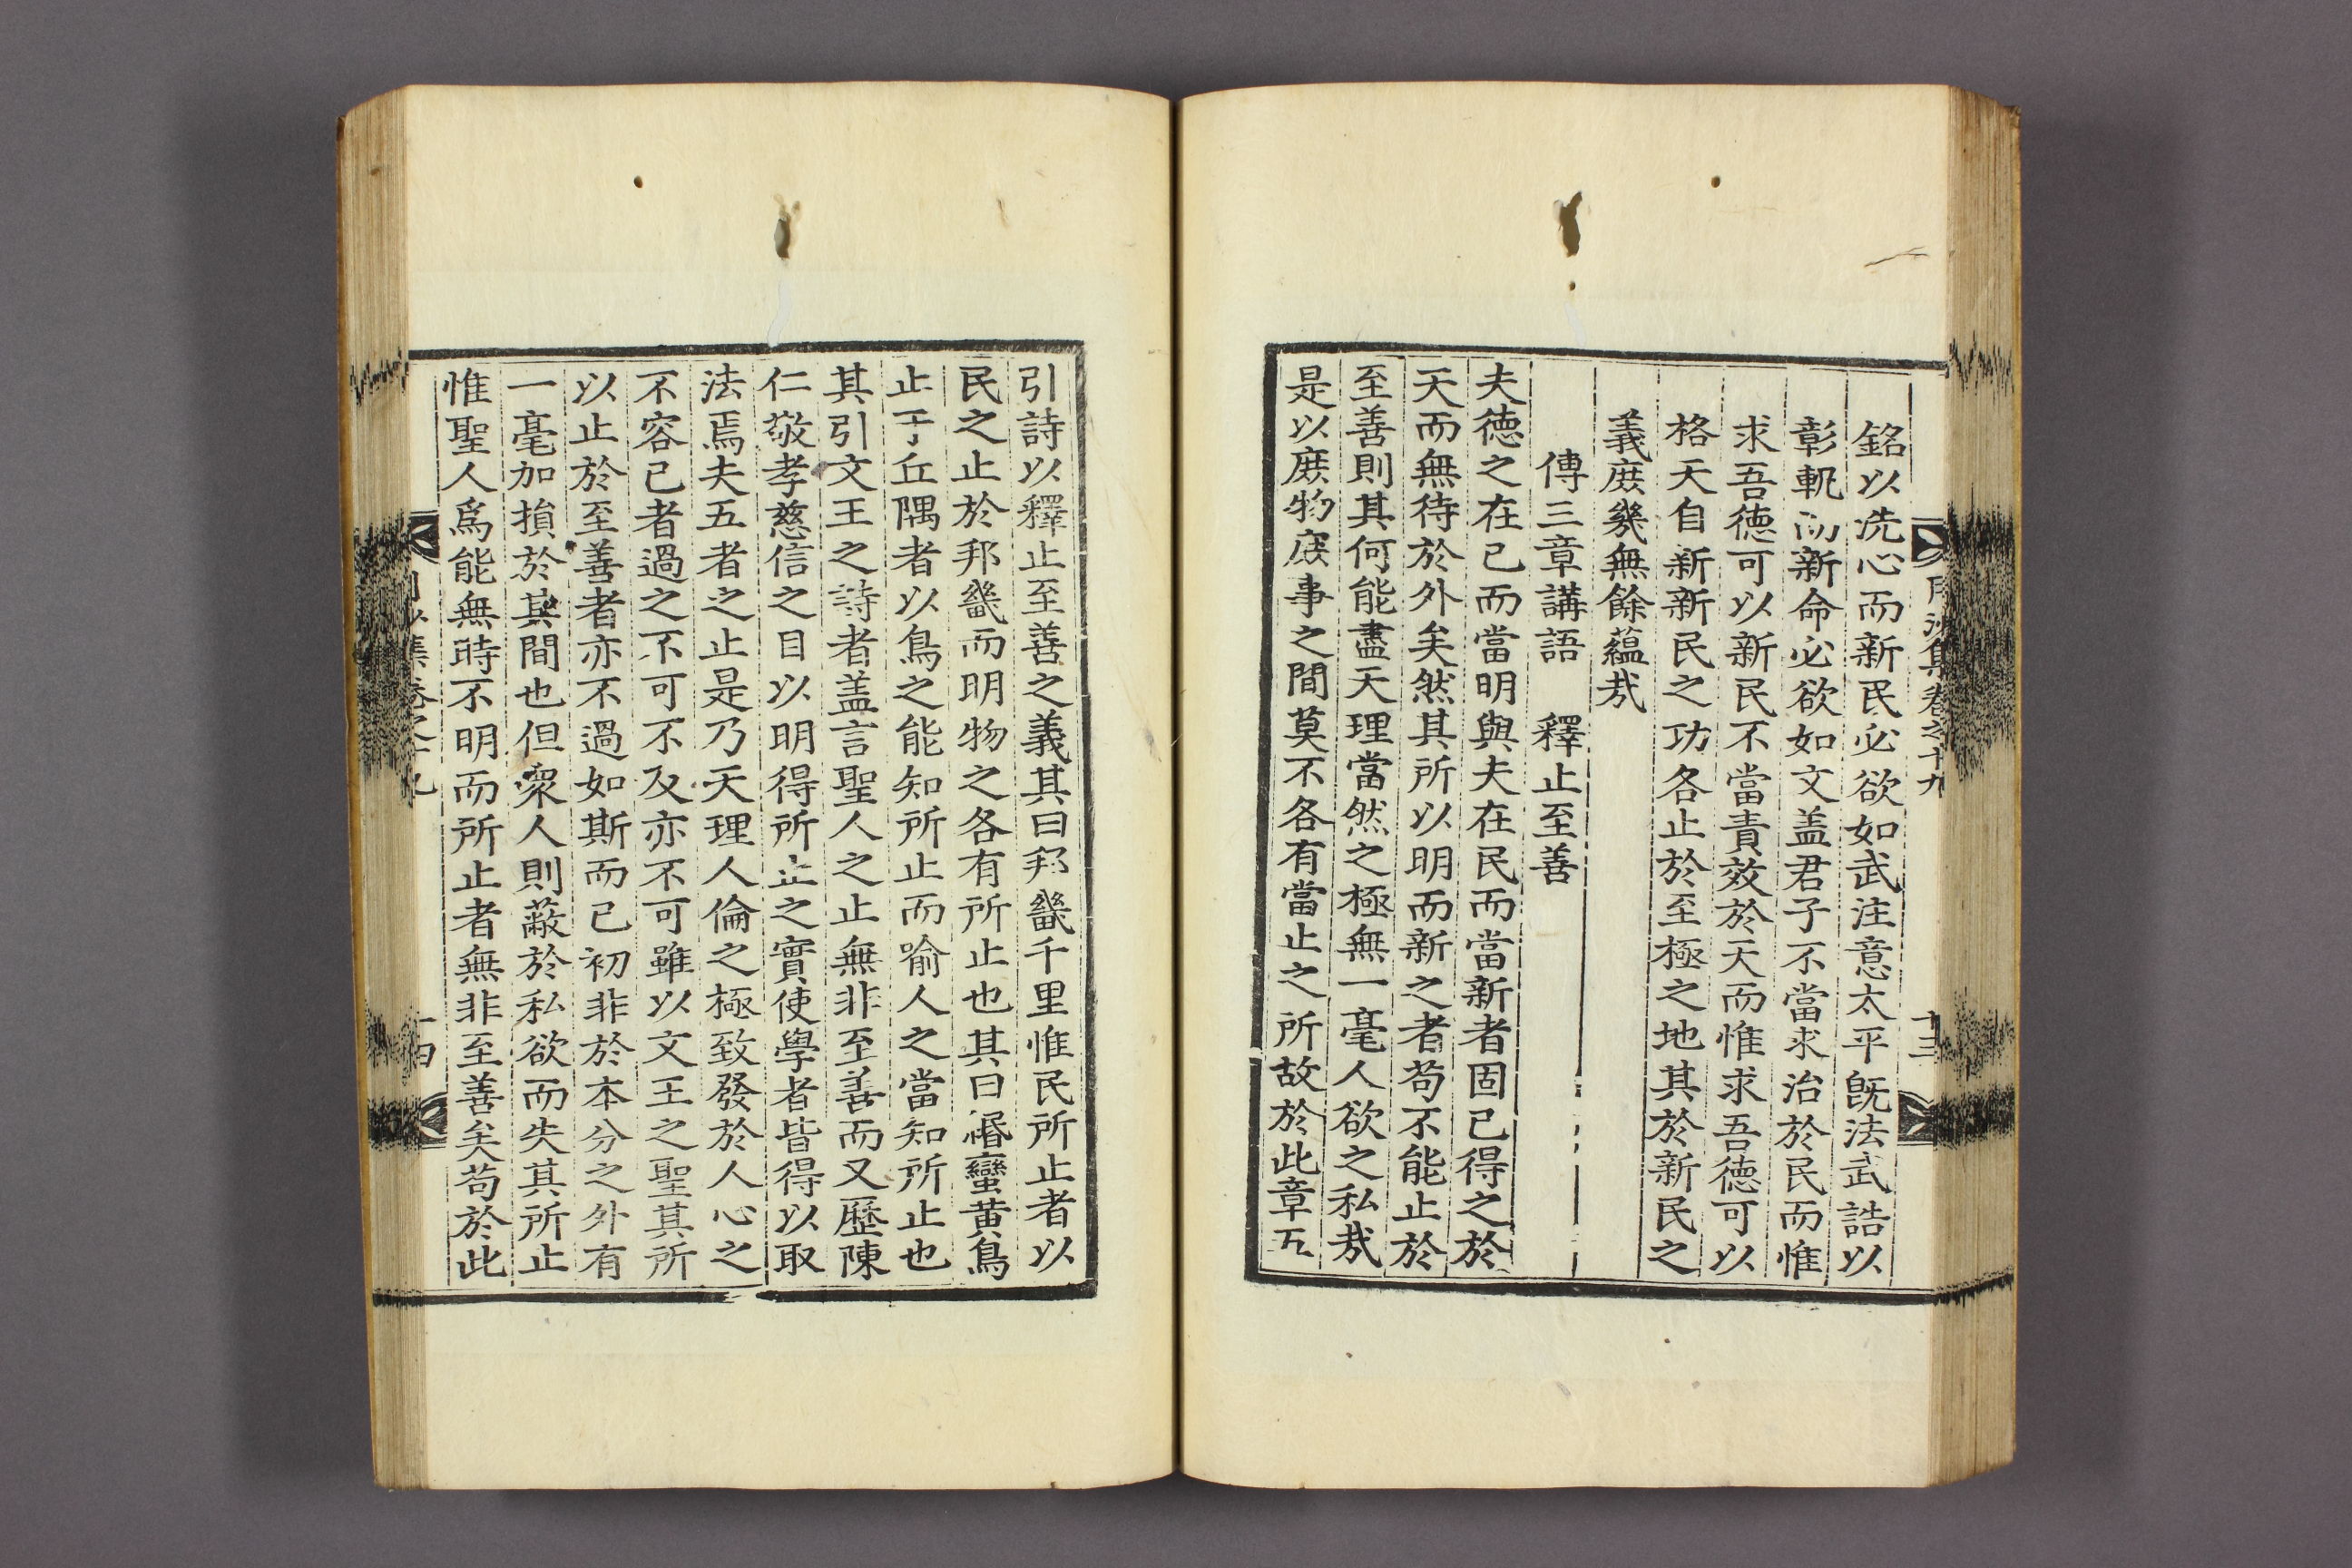 銘以洗心而新民必欲如武注意太平旣法武誥以
彰軓而新命必欲如文盖君子不當求治於民而惟
求吾德可以新民不當責效於天而惟求吾德可以
格天自新新民之功各止於至極之地其於新民之
義庻幾無餘蘊㢤
傳三章講語　釋止至善
夫德之在己而當明與夫在民而當新者固已得之於
天而無待於外矣然其所以明而新之者苟不能止於
至善則其何能盡天理當然之極無一毫人欲之私㢤
是以庻物庻事之間莫不各有當止之所故於此章五
引詩以釋止至善之義其曰邦畿千里惟民所止者以
民之止於邦畿而明物之各有所止也其曰緡蠻黄鳥
止于丘隅者以鳥之能知所止而喻人之當知所止也
其引文王之詩者盖言聖人之止無非至善而又歷陳
仁敬孝慈信之目以明得所止之實使學者皆得以取
法焉夫五者之止是乃天理人倫之極致發於人心之
不容已者過之不可不及亦不可雖以文王之聖其所
以止於至善者亦不過如斯而已初非於本分之外有
一毫加損於其間也但衆人則蔽於私欲而失其所止
惟聖人爲能無時不明而所止者無非至善矣苟於此